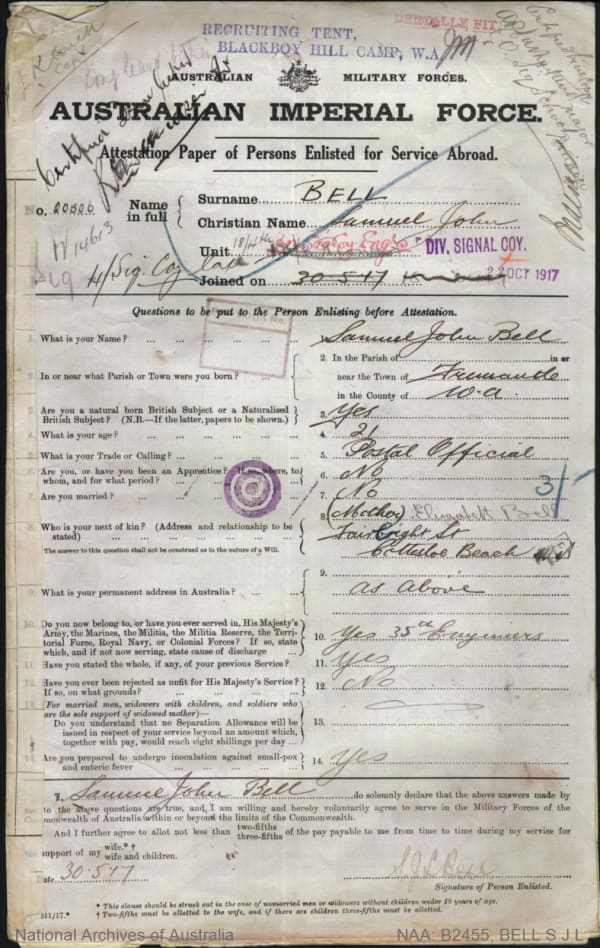 DENTALLY FIT.
RECRUITING TENT,
BLACKBOY HILL CAMP, W.A.
AUSTRALIAN MILITARY FORCES.
AUSTRALIAN IMPERIAL FORCE.
Attestation Paper of Persons Enlisted for Service Abroad.
No. 20506
Name in full
Surname BELL
Christian Name Samuel John
Unit DIV. SIGNAL COY.
4/Sig. Coy
Joined on 30.5.17 22 OCT 1917
Questions to be put to the Person Enlisting before Attestation.
1. What is your Name? ... Samuel John Bell
2. In or near what Parish or Town were you born? ... 2. In the Parish of in or
near the Town of Fremantle
in the County of W.A.
3. Are you a natural born British Subject or a Naturalised British Subject? (N.B.—If the latter, papers to be shown.) 3. Yes
4. What is your age? ... 4. 21
5. What is your Trade or Calling? ... 5. Postal Official
6. Are you, or have you been an Apprentice? If so, where, to whom, and for what period? ... 6. No
7. Are you married? ... 7. No 3/-
8. Who is your next of kin? (Address and relationship to be stated) ... 8. (Mother) Elizabeth Bell
St
Cottesloe Beach
The answer to this question shall not be construed as in the nature of a Will.
9. What is your permanent address in Australia? ... 9. as above
10. Do you now belong to, or have you ever served in, His Majesty's Army, the Marines, the Militia, the Militia Reserve, the Territorial Force, Royal Navy, or Colonial Forces? If so, state which, and if not now serving, state cause of discharge ... 10. Yes 35th Engineers
11. Have you stated the whole, if any, of your previous Service? 11. Yes
12. Have you ever been rejected as unfit for His Majesty's Service? If so, on what grounds? ... 12. No
13. For married men, widowers with children, and soldiers who are the sole support of widowed mother)—
Do you understand that no Separation Allowance will be issued in respect of your service beyond an amount which, together with pay, would reach eight shillings per day ... 13.
14. Are you prepared to undergo inoculation against small-pox and enteric fever ... 14. Yes
I, Samuel John Bell do solemnly declare that the above answers made by
me to the above questions are true, and I am willing and hereby voluntarily agree to serve in the Military Forces of the
Commonwealth of Australia within or beyond the limits of the Commonwealth.
And I further agree to allot not less than two-fifths three-fifths of the pay payable to me from time to time during my service for
the support of my wife.*† wife and children.
Date 30.5.17
Signature of Person Enlisted.
* This clause should be struck out in the case of unmarried men or widowers without children under 18 years of age.
† Two-fifths must be allotted to the wife, and if there are children three-fifths must be allotted.
National Archives of Australia
NAA: B2455, BELL S J L